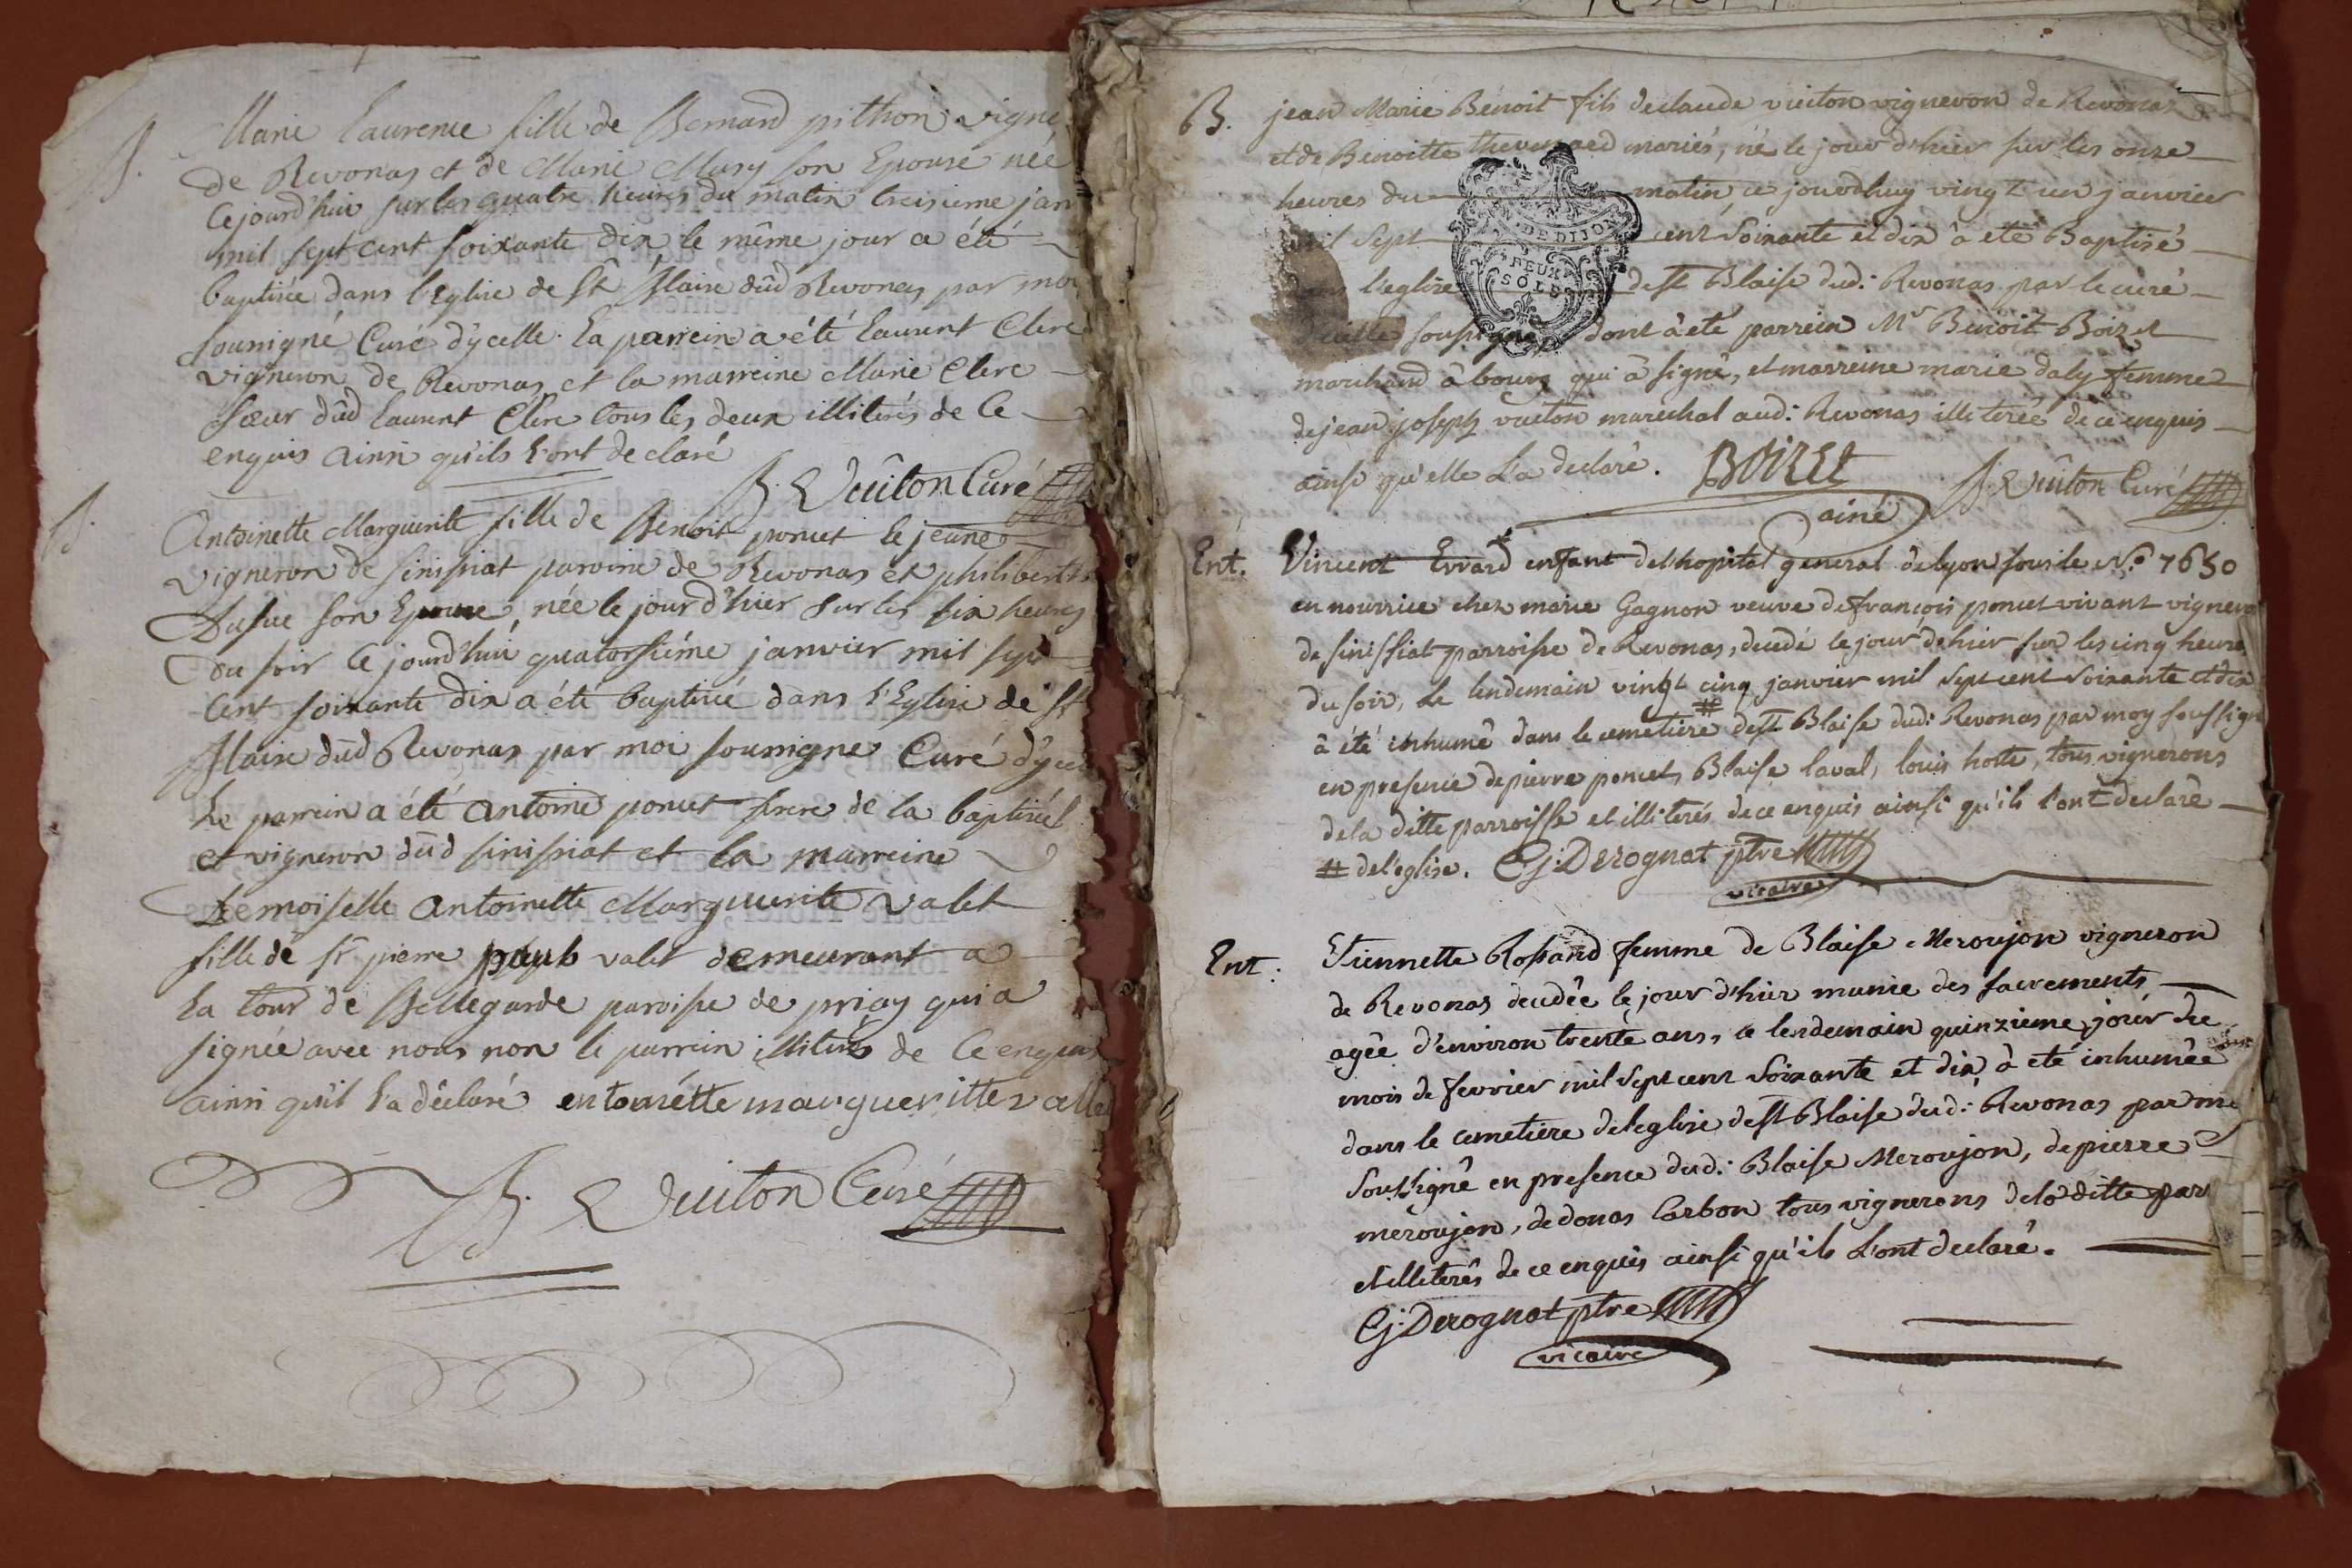 B.
Marie Laurence fille de Bernard pithon vigne
de Revonas et de Marie Mury son Epouse née
Cejourd'hui sur les quatre heures du matin treisieme jan
mil sept cent soixante dix le même jour a été
baptisée dans l'Eglise de St Blaise dud Revonas par moi
soussigné Curé d'ycelle. La parrein a été Laurent Clere
vigneron de Revonas et la marreine Marie Clere
sœur dud Laurent Clere tous les deux illiterés de Ce
enquis ainsi qu'ils l'ont declaré
B. Vuiton Curé
B.
Antoinette Marguerite fille de Benoit poncet le jeune
vigneron de sinissiat paroisse de Revonas et philiberte
Dufue son Epouse, née le jour d'hier sur les six heures
du soir Ce jourd'hui quatorsiéme janvier mil sept
Cent soixante dix a été baptisée dans l'Eglise de St
Blaise dud Revonas par moi soussigné Curé d'yce
Le parrein a été antoine poncet frere de la baptisée
et vigneron dud sinissiat et la marreine
Demoiselle antoinette Marguerite valet
fille de sr pierre valet demeurant a
La tour de Bellegarde paroisse de priay qui a
signée avec nous non le parrein illiterés de Ce enquis
ainsi qu'il l'a déclaré entoinétte marguerittevallet
B. Vuiton Curé
B. jean Marie Benoit fils de claude vuiton vigneron de Revonas
et de Benoitte thevenard mariés, né le jour d'hier sur les onze
heures du matin, ce jourdhuy vingt un janvier
mil sept cent soixante et dix à eté Baptisé
dans l'eglise de st Blaise dud: Revonas par le curé
d'icelle soussigné, dont à eté parrein Mr Benoit Boiret
DE DIJON
DEUX
SOLS
marchand à bourg qui à signé, et marreine marie daly femme
de jean joseph vuiton maréchal aud: Revonas illeterée de ce enquis
ainsi qu'elle L'a declaré. BOIRET
ainé
B. Vuiton Curé
Ent. Vincent Evrard enfant de l'hopital general de lyon sous le N.o 7650
en nourrice chez marie Gagnon veuve de françois poncet vivant vignero
de sinissiat parroisse de Revonas, decedé le jour de hier sur les cinq heures
du soir, Le lendemain vingt cinq janvier mil sept cent soixante et dix
à été inhumé dans le cemetiére # de st Blaise dud: Revonas par moy soussign
en presence de pierre poncet, Blaise laval, louis hotte, tous vignerons
de la ditte parroisse et illiterés de ce enquis ainsi qu'ils l'ont declaré
# de l'eglise. Cj: Derognat ptre
vicaire
Ent: Etiennette Rossand femme de Blaise Meroujon vigneron
de Revonas decedée le jour d'hier munie des sacrements
agée d'environ trente ans, le lendemain quinzieme jour du
mois de fevrier mil sept cent soixante et dix à eté inhumée
dans le cemetiere de l'eglise de st Blaise dud: Revonas par mo
soussigné en presence dud: Blaise Meroujon, de pierre
meroujon, de donas Carbon tous vignerons de la ditte par
et illeterés de ce enquis ainsi qu'ils L'ont declaré.
Cj: Derognat ptre
vicaire